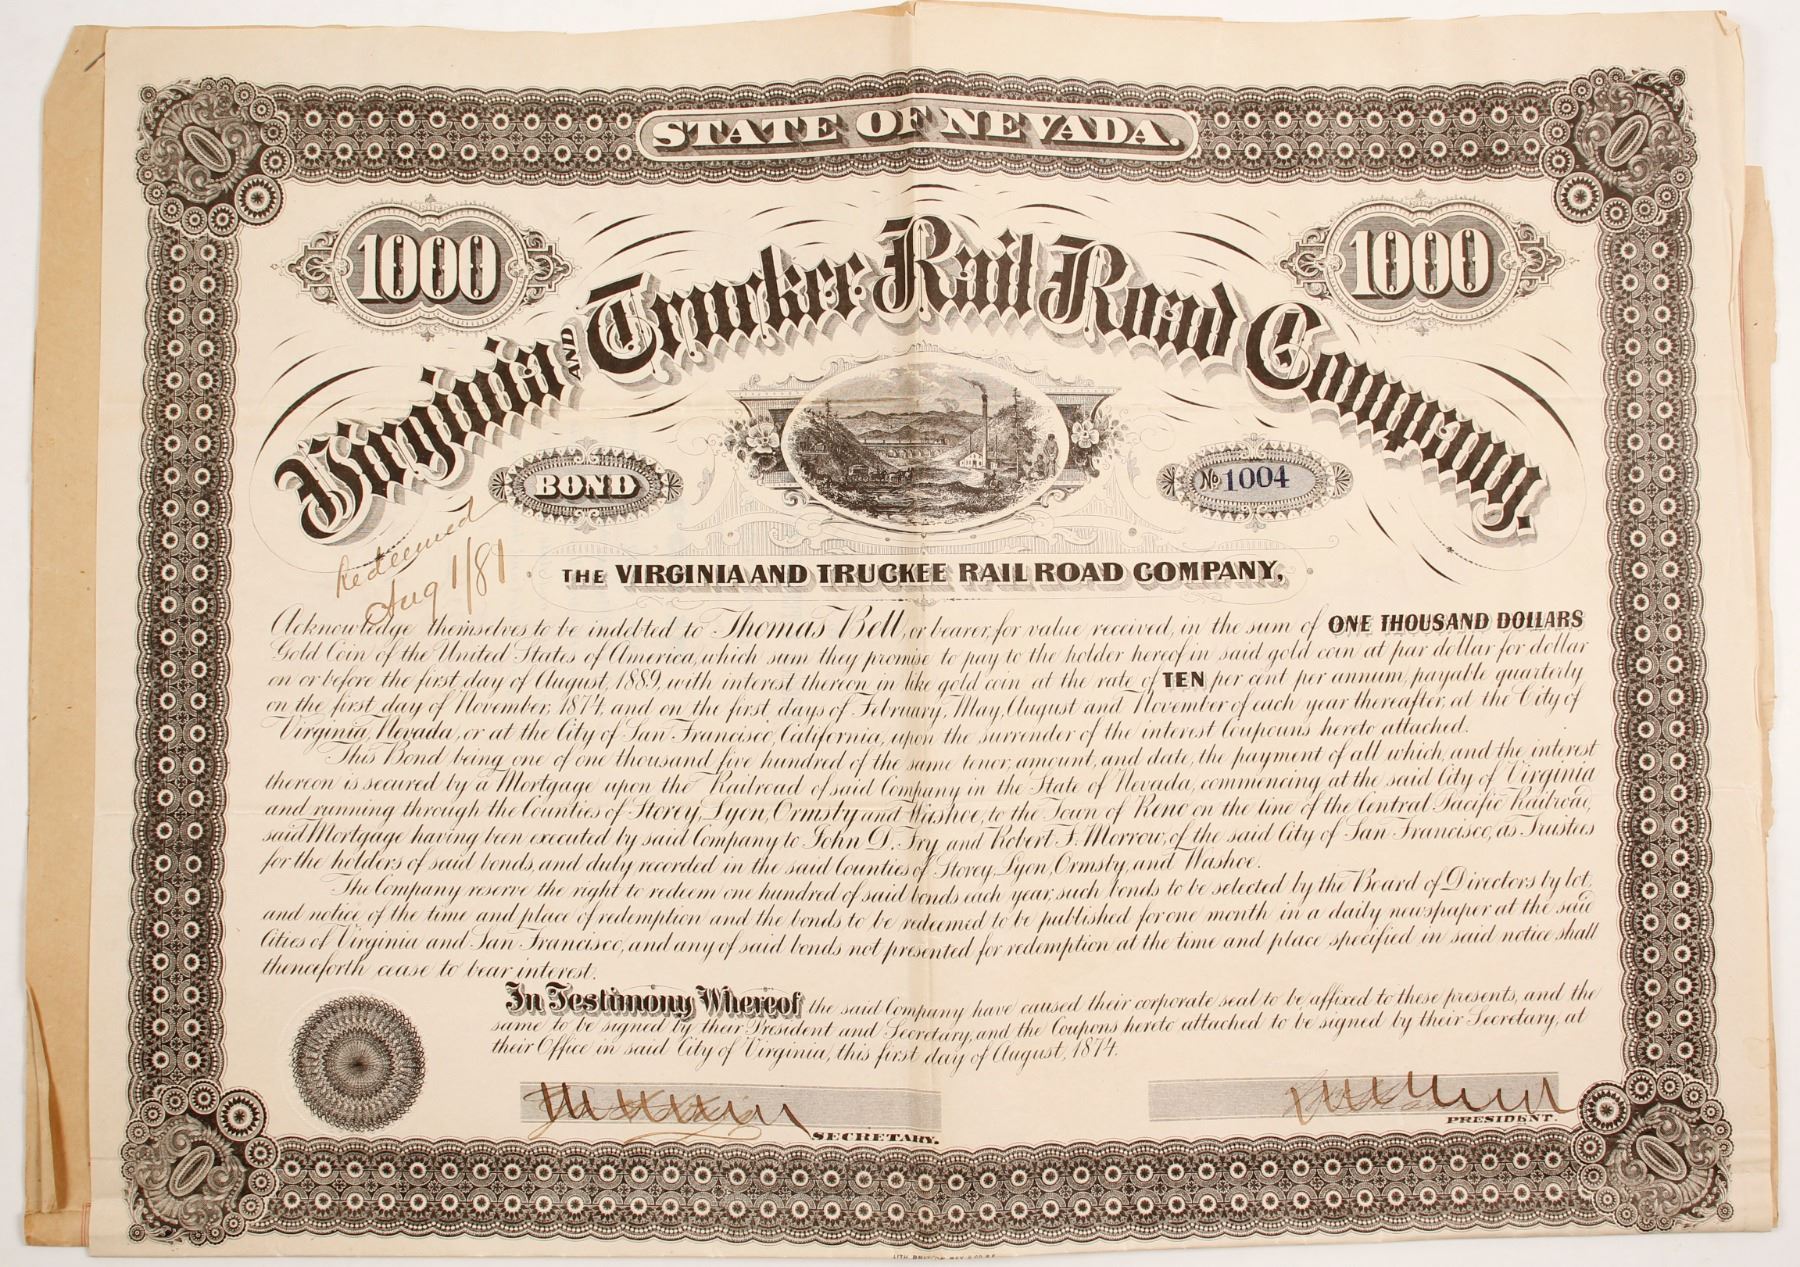 STATE OF NEVADA.
1000 1000
Virginia AND Truckee Rail Road Company.
BOND
No 1004
Redeemed
Aug 1/81
THE VIRGINIA AND TRUCKEE RAIL ROAD COMPANY,
Acknowledge themselves to be indebted to Thomas Bell, or bearer, for value received, in the sum of ONE THOUSAND DOLLARS
Gold Coin of the United States of America, which sum they promise to pay to the holder hereof in said gold coin at par dollar for dollar
on or before the first day of August, 1889, with interest thereon in like gold coin at the rate of TEN per cent per annum, payable quarterly
on the first day of November, 1874, and on the first days of February, May, August and November of each year thereafter, at the City of
Virginia, Nevada, or at the City of San Francisco, California, upon the surrender of the interest Coupons hereto attached.
This Bond being one of one thousand five hundred of the same tenor, amount, and date, the payment of all which, and the interest
thereon is secured by a Mortgage upon the Railroad of said Company in the State of Nevada, commencing at the said City of Virginia
and running through the Counties of Storey, Lyon, Ormsby and Washoe, to the Town of Reno on the line of the Central Pacific Railroad,
said Mortgage having been executed by said Company to John D. Fry and Robert F. Morrow, of the said City of San Francisco, as Trustees
for the holders of said bonds, and duly recorded in the said Counties of Storey, Lyon, Ormsby, and Washoe.
The Company reserve the right to redeem one hundred of said bonds each year, such bonds to be selected by the Board of Directors by lot,
and notice of the time and place of redemption and the bonds to be redeemed to be published for one month in a daily newspaper at the said
Cities of Virginia and San Francisco, and any of said bonds not presented for redemption at the time and place specified in said notice shall
thenceforth cease to bear interest.
In Testimony Whereof the said Company have caused their corporate seal to be affixed to these presents, and the
same to be signed by their President and Secretary, and the Coupons hereto attached to be signed by their Secretary, at
their Office in said City of Virginia, this first day of August, 1874.
SECRETARY.
PRESIDENT.